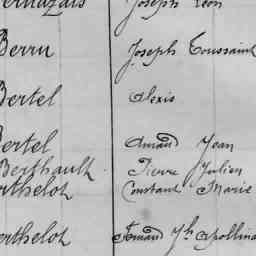 Joseph Léon
Berru Joseph Toussaint
Bertel Alexis
Bertel Amand Jean
Berthault Pierre Julien
erthelot Constant Marie
erthelot Fernand Jh Apollina